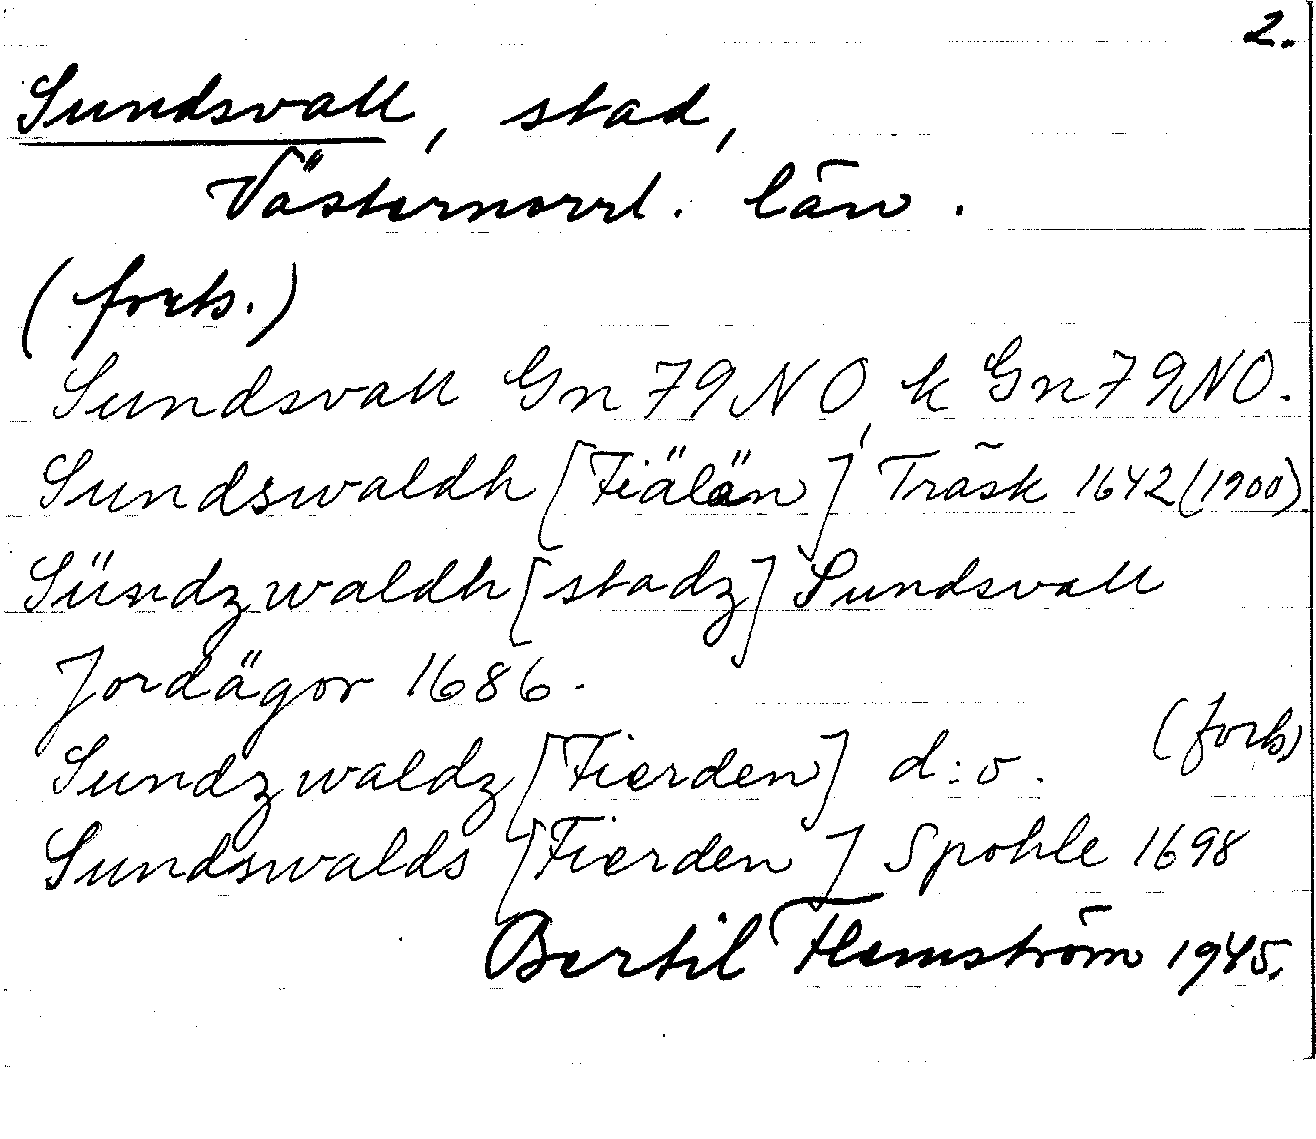 2.
Sundsvall, stad,
Västernorrl. län.
(forts.)
Sundsvall Gn79NO, k Gn79NO.
Sundswaldh [Fiälän] Träsk 1642(1900).
Sündzwaldh [stadz] Sundsvall
Jordägor 1686.
(forts)
Sundzwaldz [Fierden] d:o.
Sundswalds [Fierden] Spohle 1698
Bertil Flemström 1945.